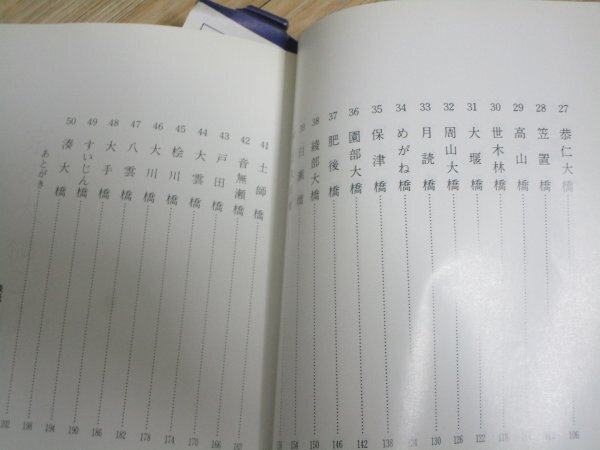 27 恭仁大橋 106
28 笠置橋
29 高山橋 114
30 世木林橋 118
31 大堰橋 122
32 周山大橋 126
33 月読橋 130
34 めがね橋 134
35 保津橋 138
36 園部大橋 142
37 肥後橋 146
38 綾部大橋 150
39 白瀬橋 154
41 土師橋 162
42 音無瀬橋 166
43 戸田橋 170
44 大雲橋 174
45 桧川橋 178
46 大川橋 182
47 八雲橋 186
48 大手橋 190
49 すいじん橋 194
50 湊大橋 198
あとがき 202